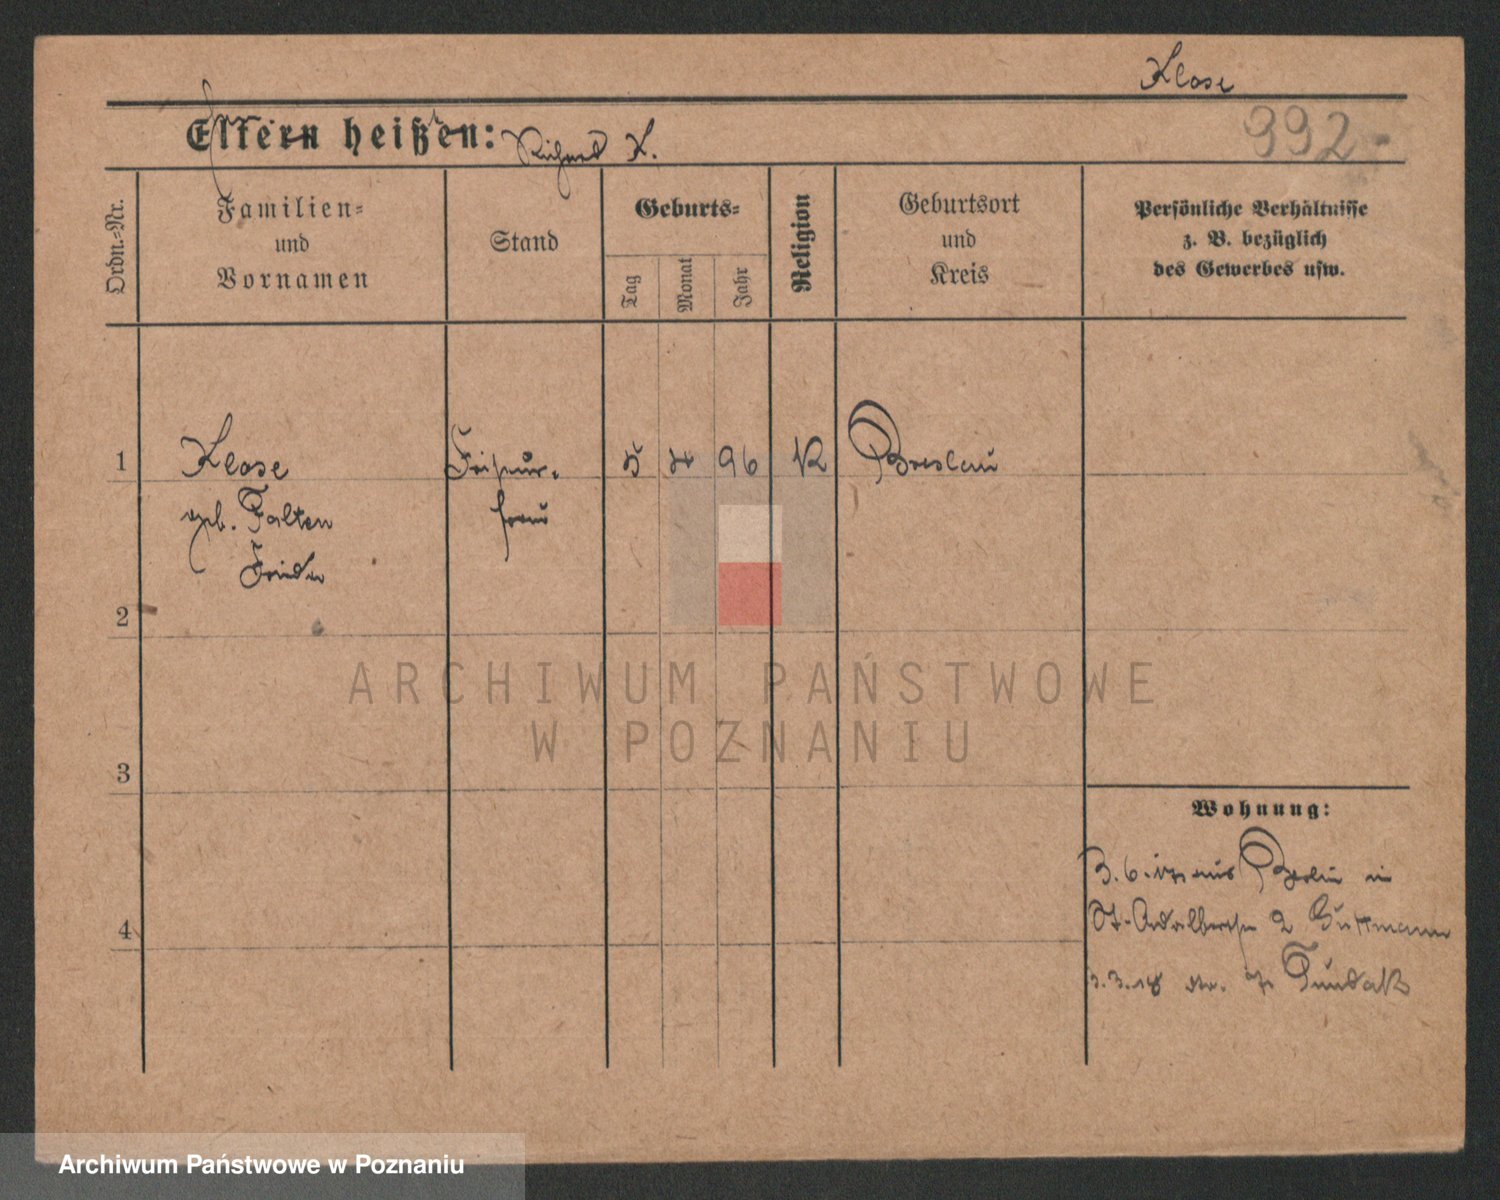 Klose
Eltern heißen: Richard K.
992
Ordn.-Nr.
Familien-
und
Vornamen
Stand
Geburts-
Tag
Monat
Jahr
Religion
Geburtsort
und
Kreis
Persönliche Verhältnisse
z. B. bezüglich
des Gewerbes usw.
1
Klose
geb. Falten
Frieda
Friseur-
frau
5
4
96
K
Breslau
2
ARCHIWUM PAŃSTWOWE
W POZNANIU
3
Wohnung:
3.6.17 aus Berlin in
St. Adalbertstr 2 Guttmann
4
3.3.18
Archiwum Państwowe w Poznaniu